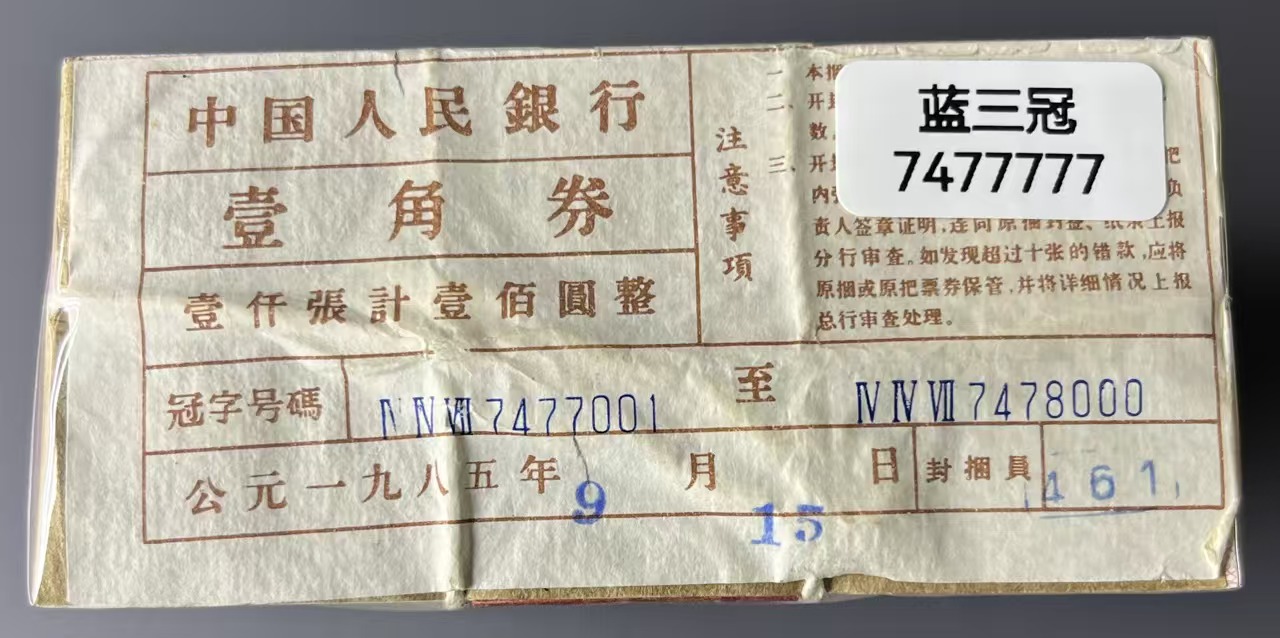 中国人民銀行
壹角券
壹仟張計壹佰圓整
注意事項
一
二、开
数。
三、开
把
内
负
责人签章证明，连同原捆封签、纸条上报
分行审查。如发现超过十张的错款，应将
原捆或原把票券保管，并将详细情况上报
总行审查处理。
蓝三冠
7477777
冠字号碼 ⅣⅣⅦ7477001 至 ⅣⅣⅦ7478000
公元一九八五年9月15日 封捆員 461